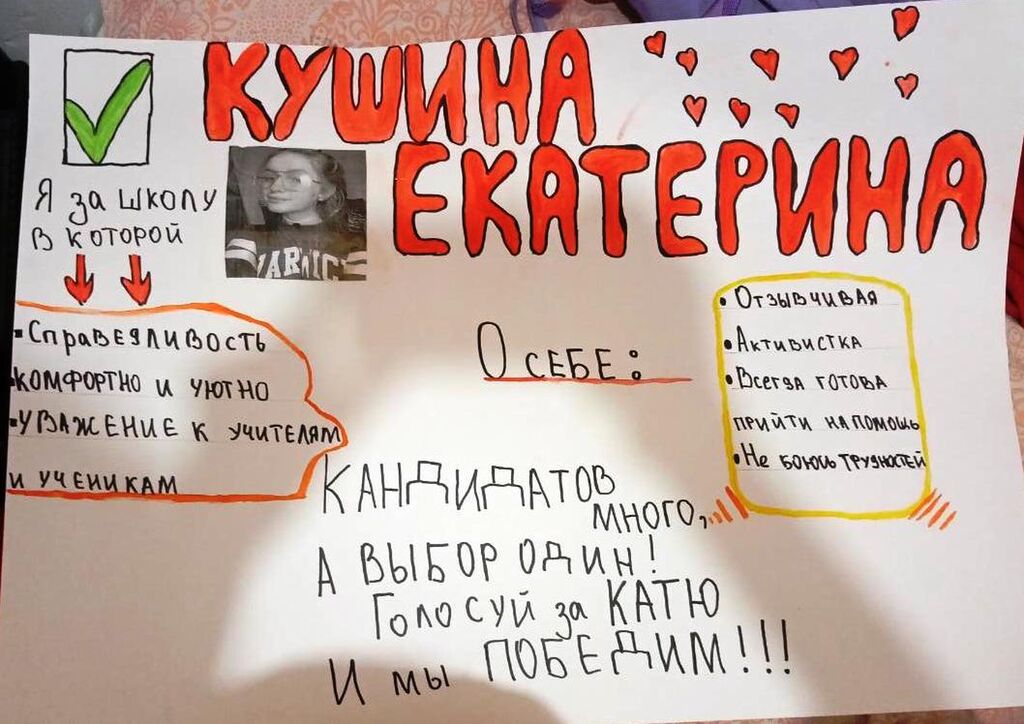 КУШИНА
ЕКАТЕРИНА
Я за школу
в которой
• Справедливость
• комфортно и уютно
• уважение к учителям
и ученикам
О себе:
• Отзывчивая
• Активистка
• Всегда готова
прийти на помощь
• Не боюсь трудностей
КАНДИДАТОВ
МНОГО,
А ВЫБОР ОДИН!
Голосуй за КАТЮ
И мы ПОБЕДИМ!!!